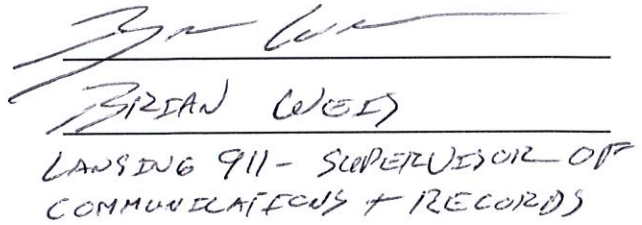 BRIAN WEIS
LANSING 911- SUPERVISOR OF
COMMUNICATIONS + RECORDS